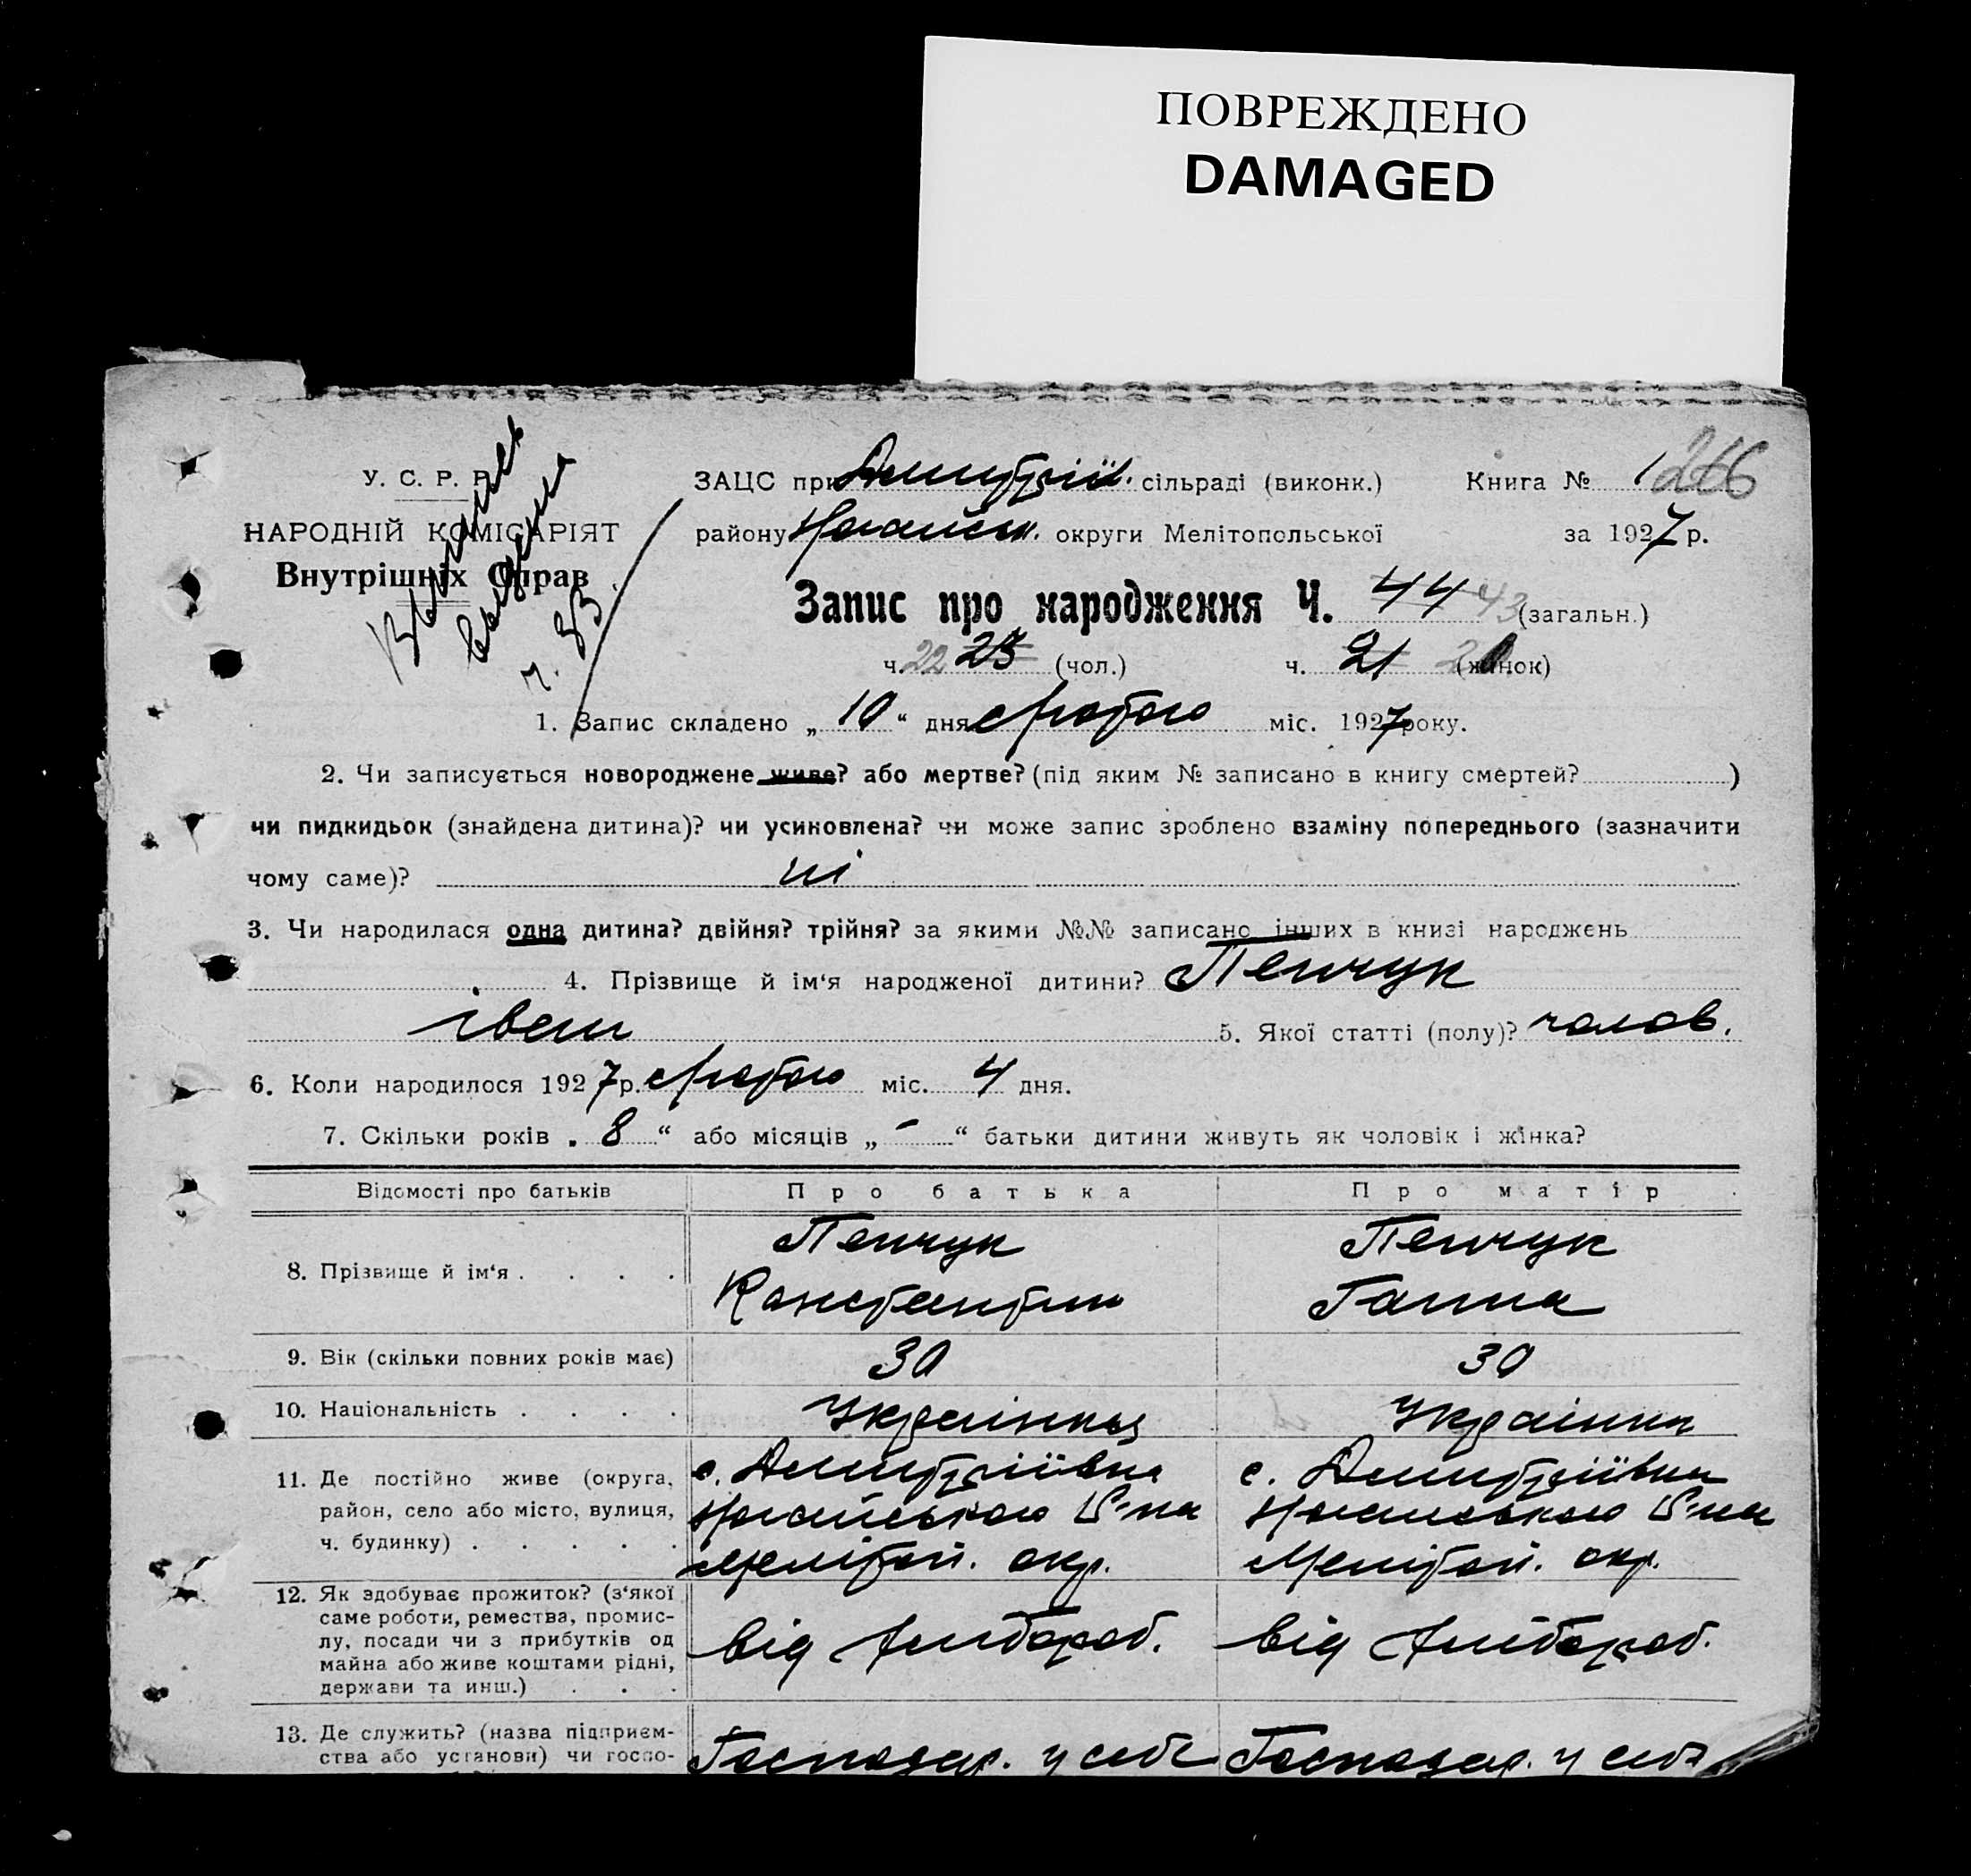 ПОВРЕЖДЕНО
DAMAGED
У. С. Р. Р.
НАРОДНІЙ КОМІСАРІЯТ
Внутрішніх Справ
ЗАЦС при Дмитрії. сільраді (виконк.) Книга № 1 266
району Ногайськ. округи Мелітопольської за 1927 р.
Запис про народження Ч. 44 43 (загальн.)
ч. 22 23 (чол.) ч. 21 (жінок)
1. Запис складено „ 10 “ дня лютого міс. 1927 року.
2. Чи записується новороджене живе? або мертве? (під яким № записано в книгу смертей? )
чи пидкидьок (знайдена дитина)? чи усиновлена? чи може запис зроблено взаміну попереднього (зазначити
чому саме)? ні
3. Чи народилася одна дитина? двійня? трійня? за якими №№ записано інших в книзі народжень
4. Прізвище й ім‘я народженої дитини? Пенчук
Іван 5. Якої статті (полу)? чолов.
6. Коли народилося 1927 р. лютого міс. 4 дня.
7. Скільки років „ 8 “ або місяців „ - “ батьки дитини живуть як чоловік і жінка?
Відомості про батьків Про батька Про матір
8. Прізвище й ім‘я . . . . Пенчук Константин Пенчук Ганна
9. Вік (скільки повних років має) 30 30
10. Національність . . . . Українець Українка
11. Де постійно живе (округа, с. Дмитріївка с. Дмитріївка
район, село або місто, вулиця, Ногайського р-на Ногайського р-на
ч. будинку) . . . . . Мелітоп. окр. Мелітоп. окр.
12. Як здобуває прожиток? (з‘якої
саме роботи, ремества, промис-
лу, посади чи з прибутків од від хлібороб. від хлібороб.
майна або живе коштами рідні,
держави та инш.) . . .
13. Де служить? (назва підприєм-
ства або установи) чи госпо- Господар. у себе Господар. у себе